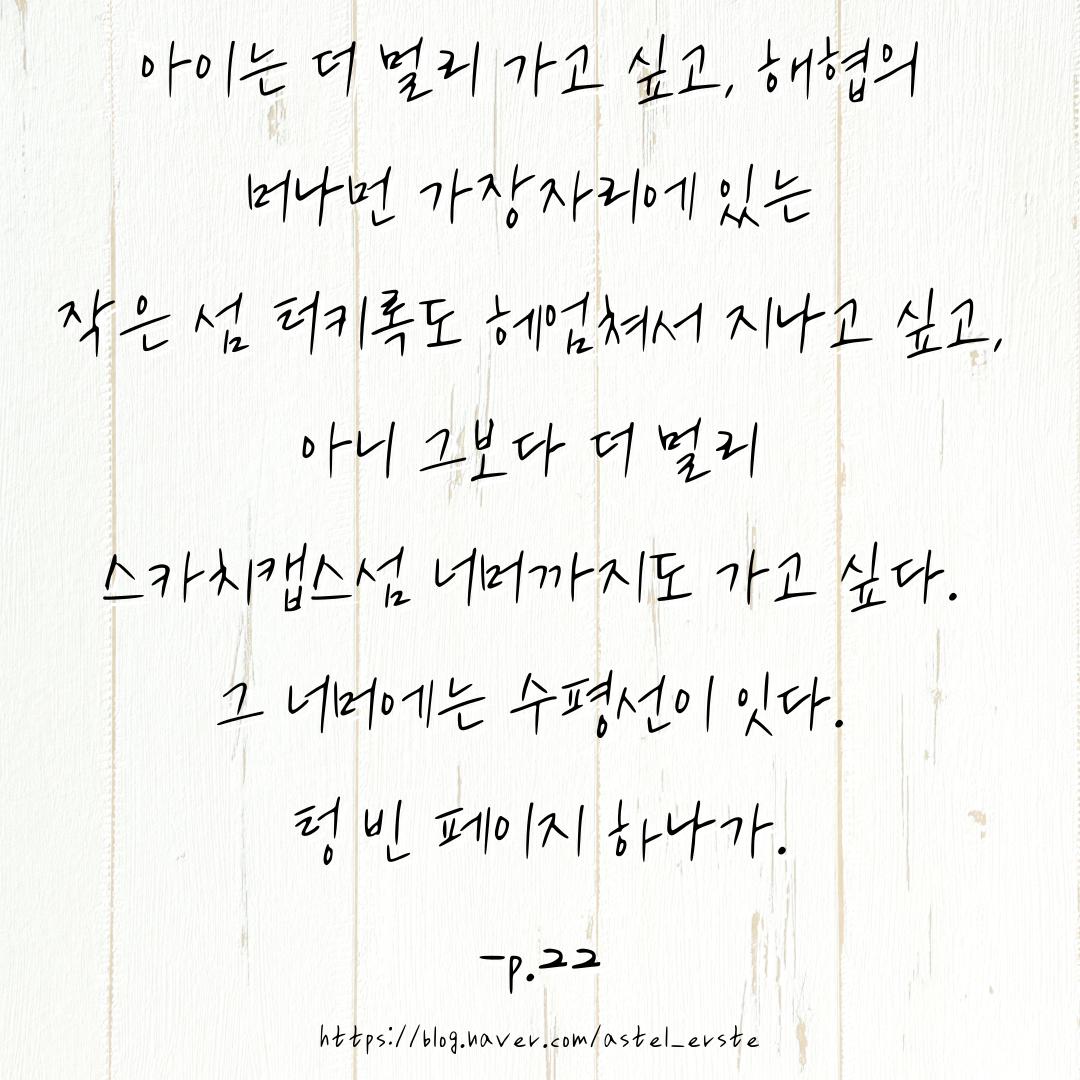 아이는 더 멀리 가고 싶고, 해협의
머나먼 가장자리에 있는
작은 섬 터키록도 헤엄쳐서 지나고 싶고,
아니 그보다 더 멀리
스카치캡스섬 너머까지도 가고 싶다.
그 너머에는 수평선이 잇다.
텅 빈 페이지 하나가.
-p.22
https://blog.naver.com/astel_erste